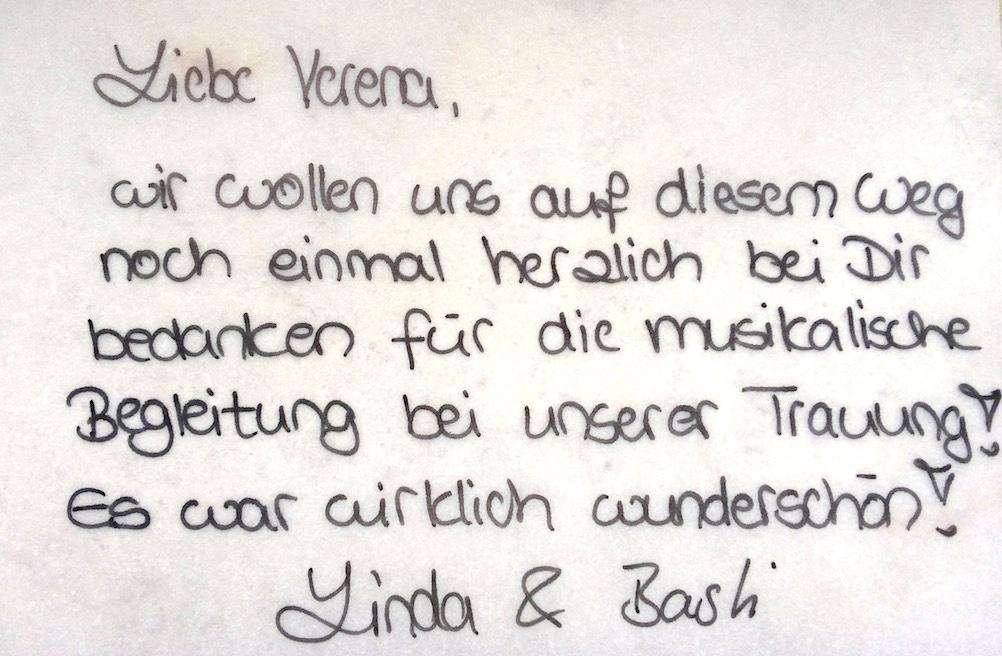 Liebe Verena,
wir wollen uns auf diesem Weg
noch einmal herzlich bei Dir
bedanken für die musikalische
Begleitung bei unserer Trauung!
Es war wirklich wunderschön!
Linda & Basti